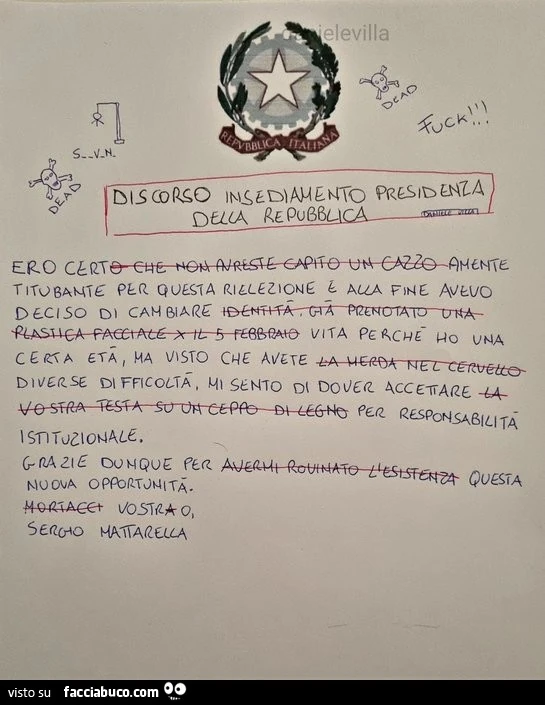 danielevilla
REPVBBLICA ITALIANA
DEAD
FUCK!!!
S _ _ V _ N _
DEAD
DISCORSO INSEDIAMENTO PRESIDENZA
DELLA REPUBBLICA
DANIELE VILLA
ERO CERTO CHE NON AVRESTE CAPITO UN CAZZO AMENTE
TITUBANTE PER QUESTA RIELEZIONE E ALLA FINE AVEVO
DECISO DI CAMBIARE IDENTITÀ. GIÀ PRENOTATO UNA
PLASTICA FACCIALE X IL 5 FEBBRAIO VITA PERCHÈ HO UNA
CERTA ETÀ, MA VISTO CHE AVETE LA MERDA NEL CERVELLO
DIVERSE DIFFICOLTÀ, MI SENTO DI DOVER ACCETTARE LA
VOSTRA TESTA SU UN CEPPO DI LEGNO PER RESPONSABILITÀ
ISTITUZIONALE.
GRAZIE DUNQUE PER AVERMI ROVINATO L'ESISTENZA QUESTA
NUOVA OPPORTUNITÀ.
MORTACCI VOSTRAO,
SERGIO MATTARELLA
visto su facciabuco.com